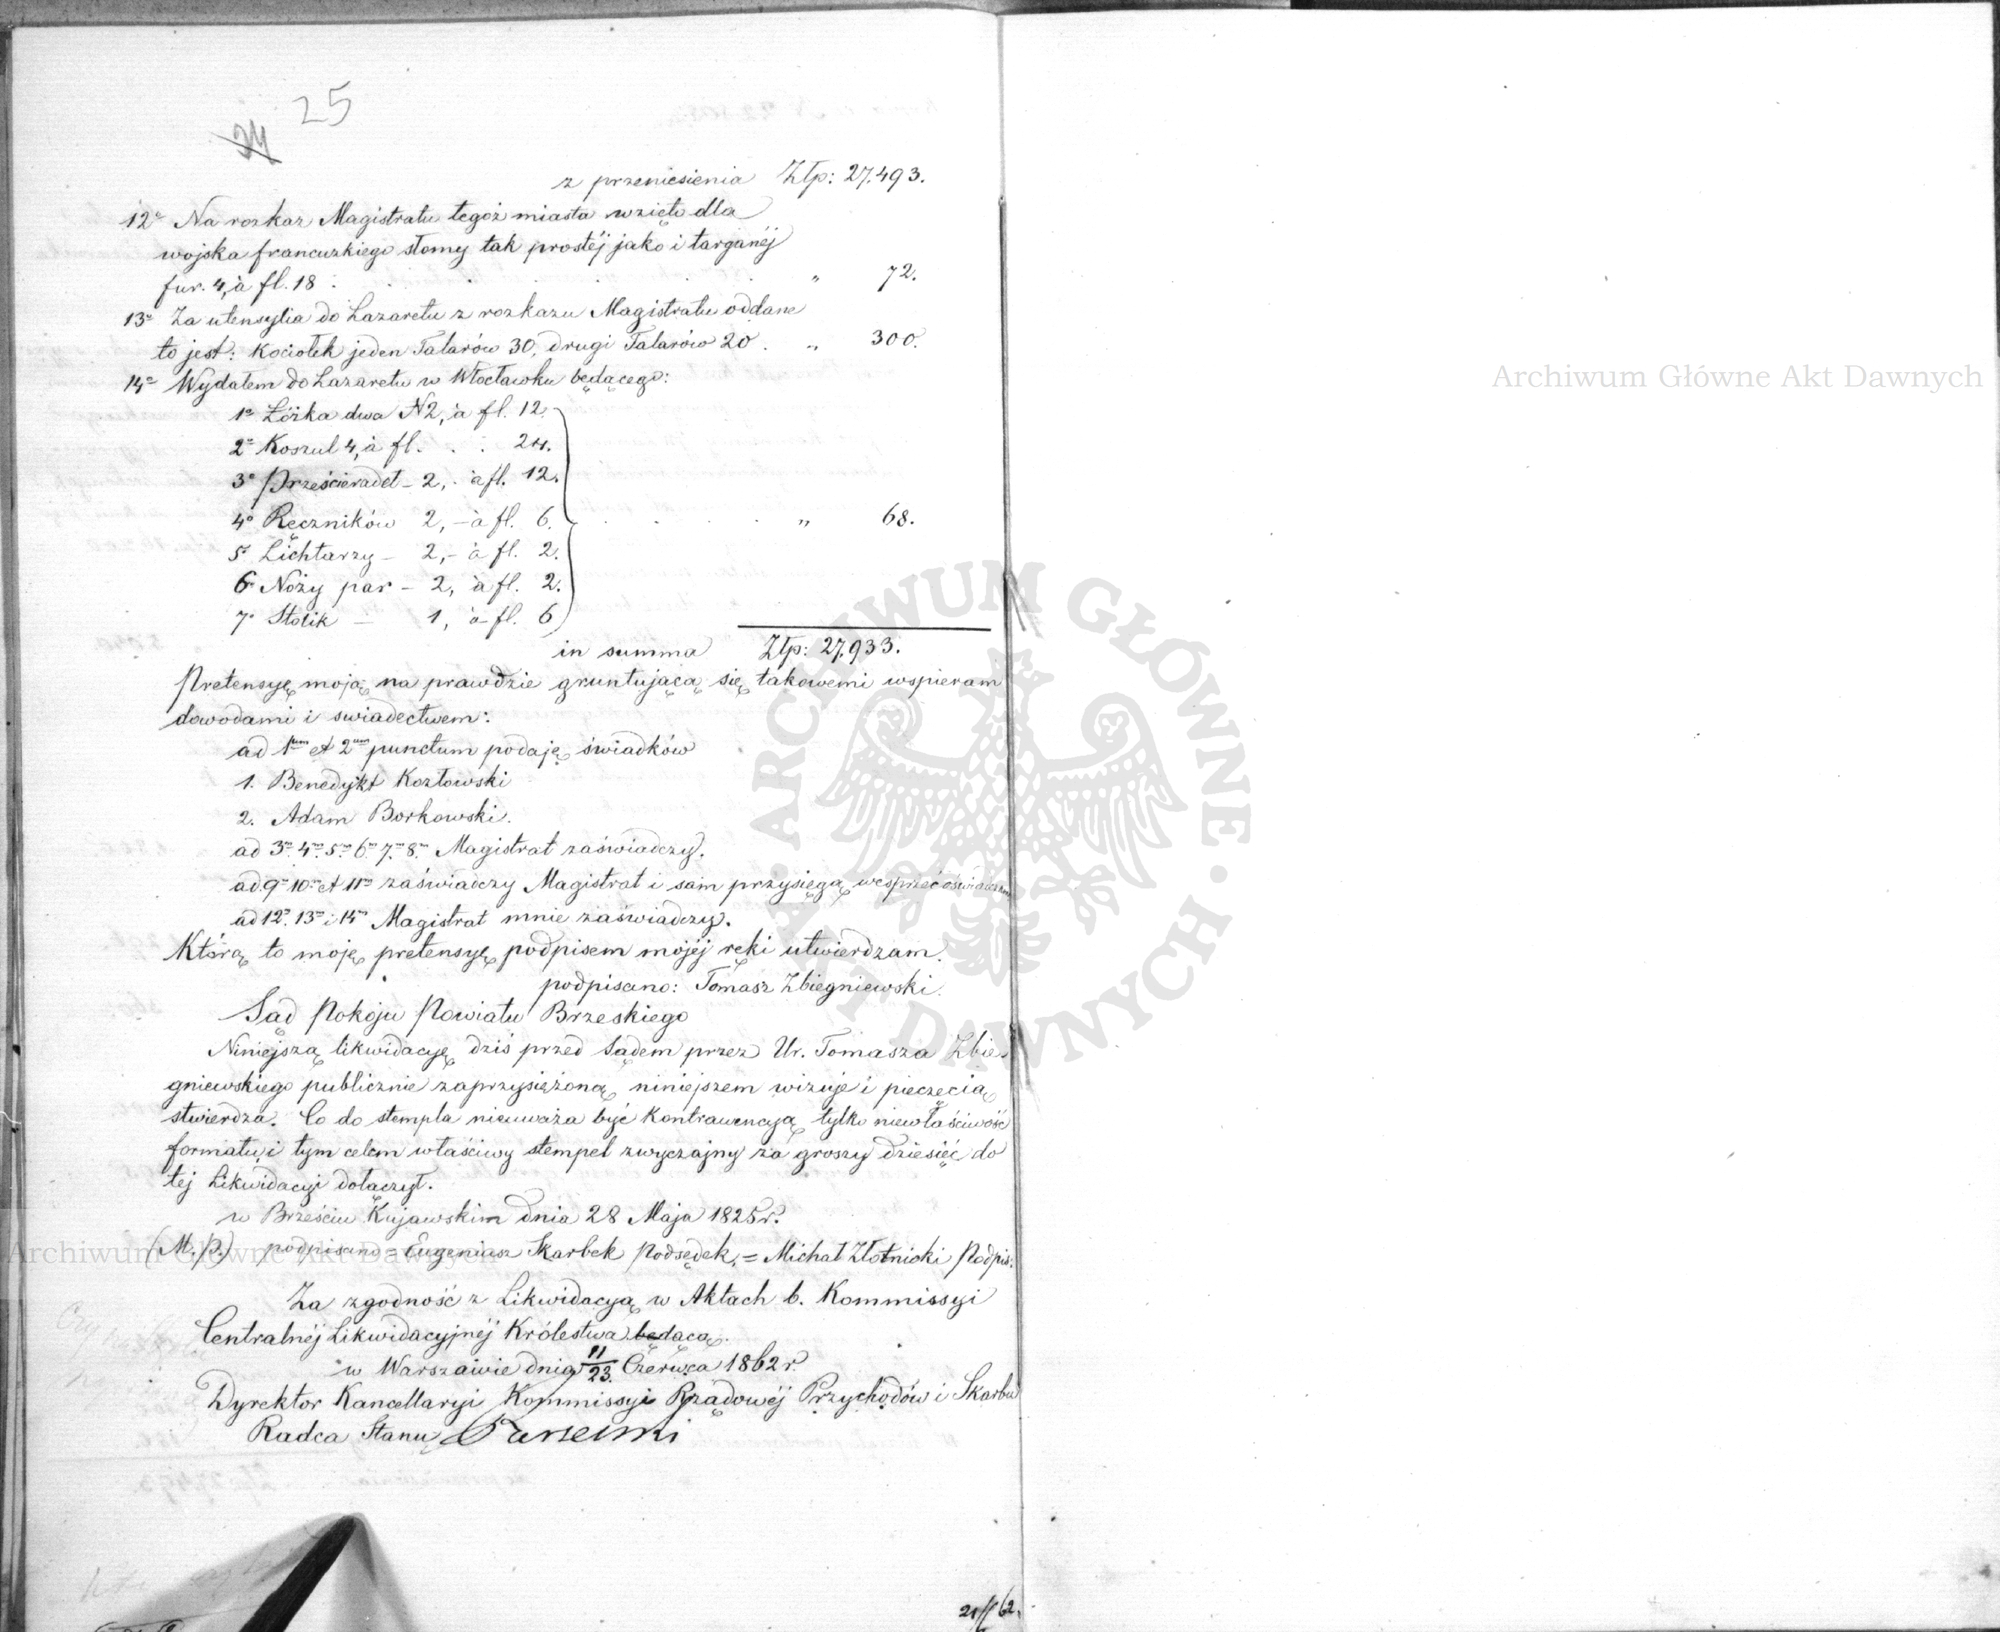 24
25
z przeniesienia Złp: 27.493.
12o Na rozkaz Magistratu tegoż miasta wzięto dla
wojska francuzkiego słomy tak prostéj jako i targanéj
fur. 4, à fl. 18 . . . . . . . " 72.
13o Za utensylia do Lazaretu z rozkazu Magistratu oddane
to jest: Kociołek jeden Talarów 30, drugi Talarów 20 . " 300.
14o Wydałem do Lazaretu w Włocławku będącego:
1o Łóżka dwa N2, à fl. 12.
2o Koszul 4, à fl. . . 24.
3o Prześcieradeł – 2, . à fl. 12.
4o Ręczników 2, – à fl. 6. . . . . " 68.
5o Lichtarzy – 2, – à fl. 2.
6o Noży par – 2, à fl. 2.
7o Stolik – 1, à fl. 6
in summa Złp: 27.933.
Pretensyę moją na prawdzie gruntującą się takowemi wspieram
dowodami i swiadectwem:
ad 1um et 2um punctum podaję świadków
1. Benedykt Kozłowski
2. Adam Borkowski.
ad 3m 4m 5m 6m 7m 8m Magistrat zaświadczy.
ad 9m 10m et 11m zaświadczy Magistrat i sam przysięgą wesprzeć
ad 12m 13m i 14m Magistrat mnie zaświadczy.
Którą to moję pretensyę podpisem mojéj ręki utwierdzam.
podpisano: Tomasz Zbiegniewski.
Sąd Pokoju Powiatu Brzeskiego
Niniejszą likwidacyę dziś przed Sądem przez Ur. Tomasza Zbie-
gniewskiego publicznie zaprzysiężoną niniejszem wizuje i pieczęcią
stwierdza. Co do stempla nieuważa być Kontrawencyą tylko niewłaściwość
formatu, i tym celem właściwy stempel zwyczajny za groszy dziesięć do
tej Likwidacyi dołączył.
w Brześciu Kujawskim dnia 28 Maja 1825 r.
(M. P.) podpisano = Eugeniasz Skarbek Podsędek. = Michał Złotnicki Podpis:
Za zgodność z Likwidacyą w Aktach b. Kommissyi
Centralnéj Likwidacyjnéj Królestwa będącą.
w Warszawie dnia 11/23 Czerwca 1862 r.
Dyrektor Kancellaryi Kommissyi Rządowéj Przychodów i Skarbu
Radca Stanu
21/62.
Archiwum Główne Akt Dawnych
Archiwum Główne Akt Dawnych
ARCHIWUM GŁÓWNE · AKT DAWNYCH ·